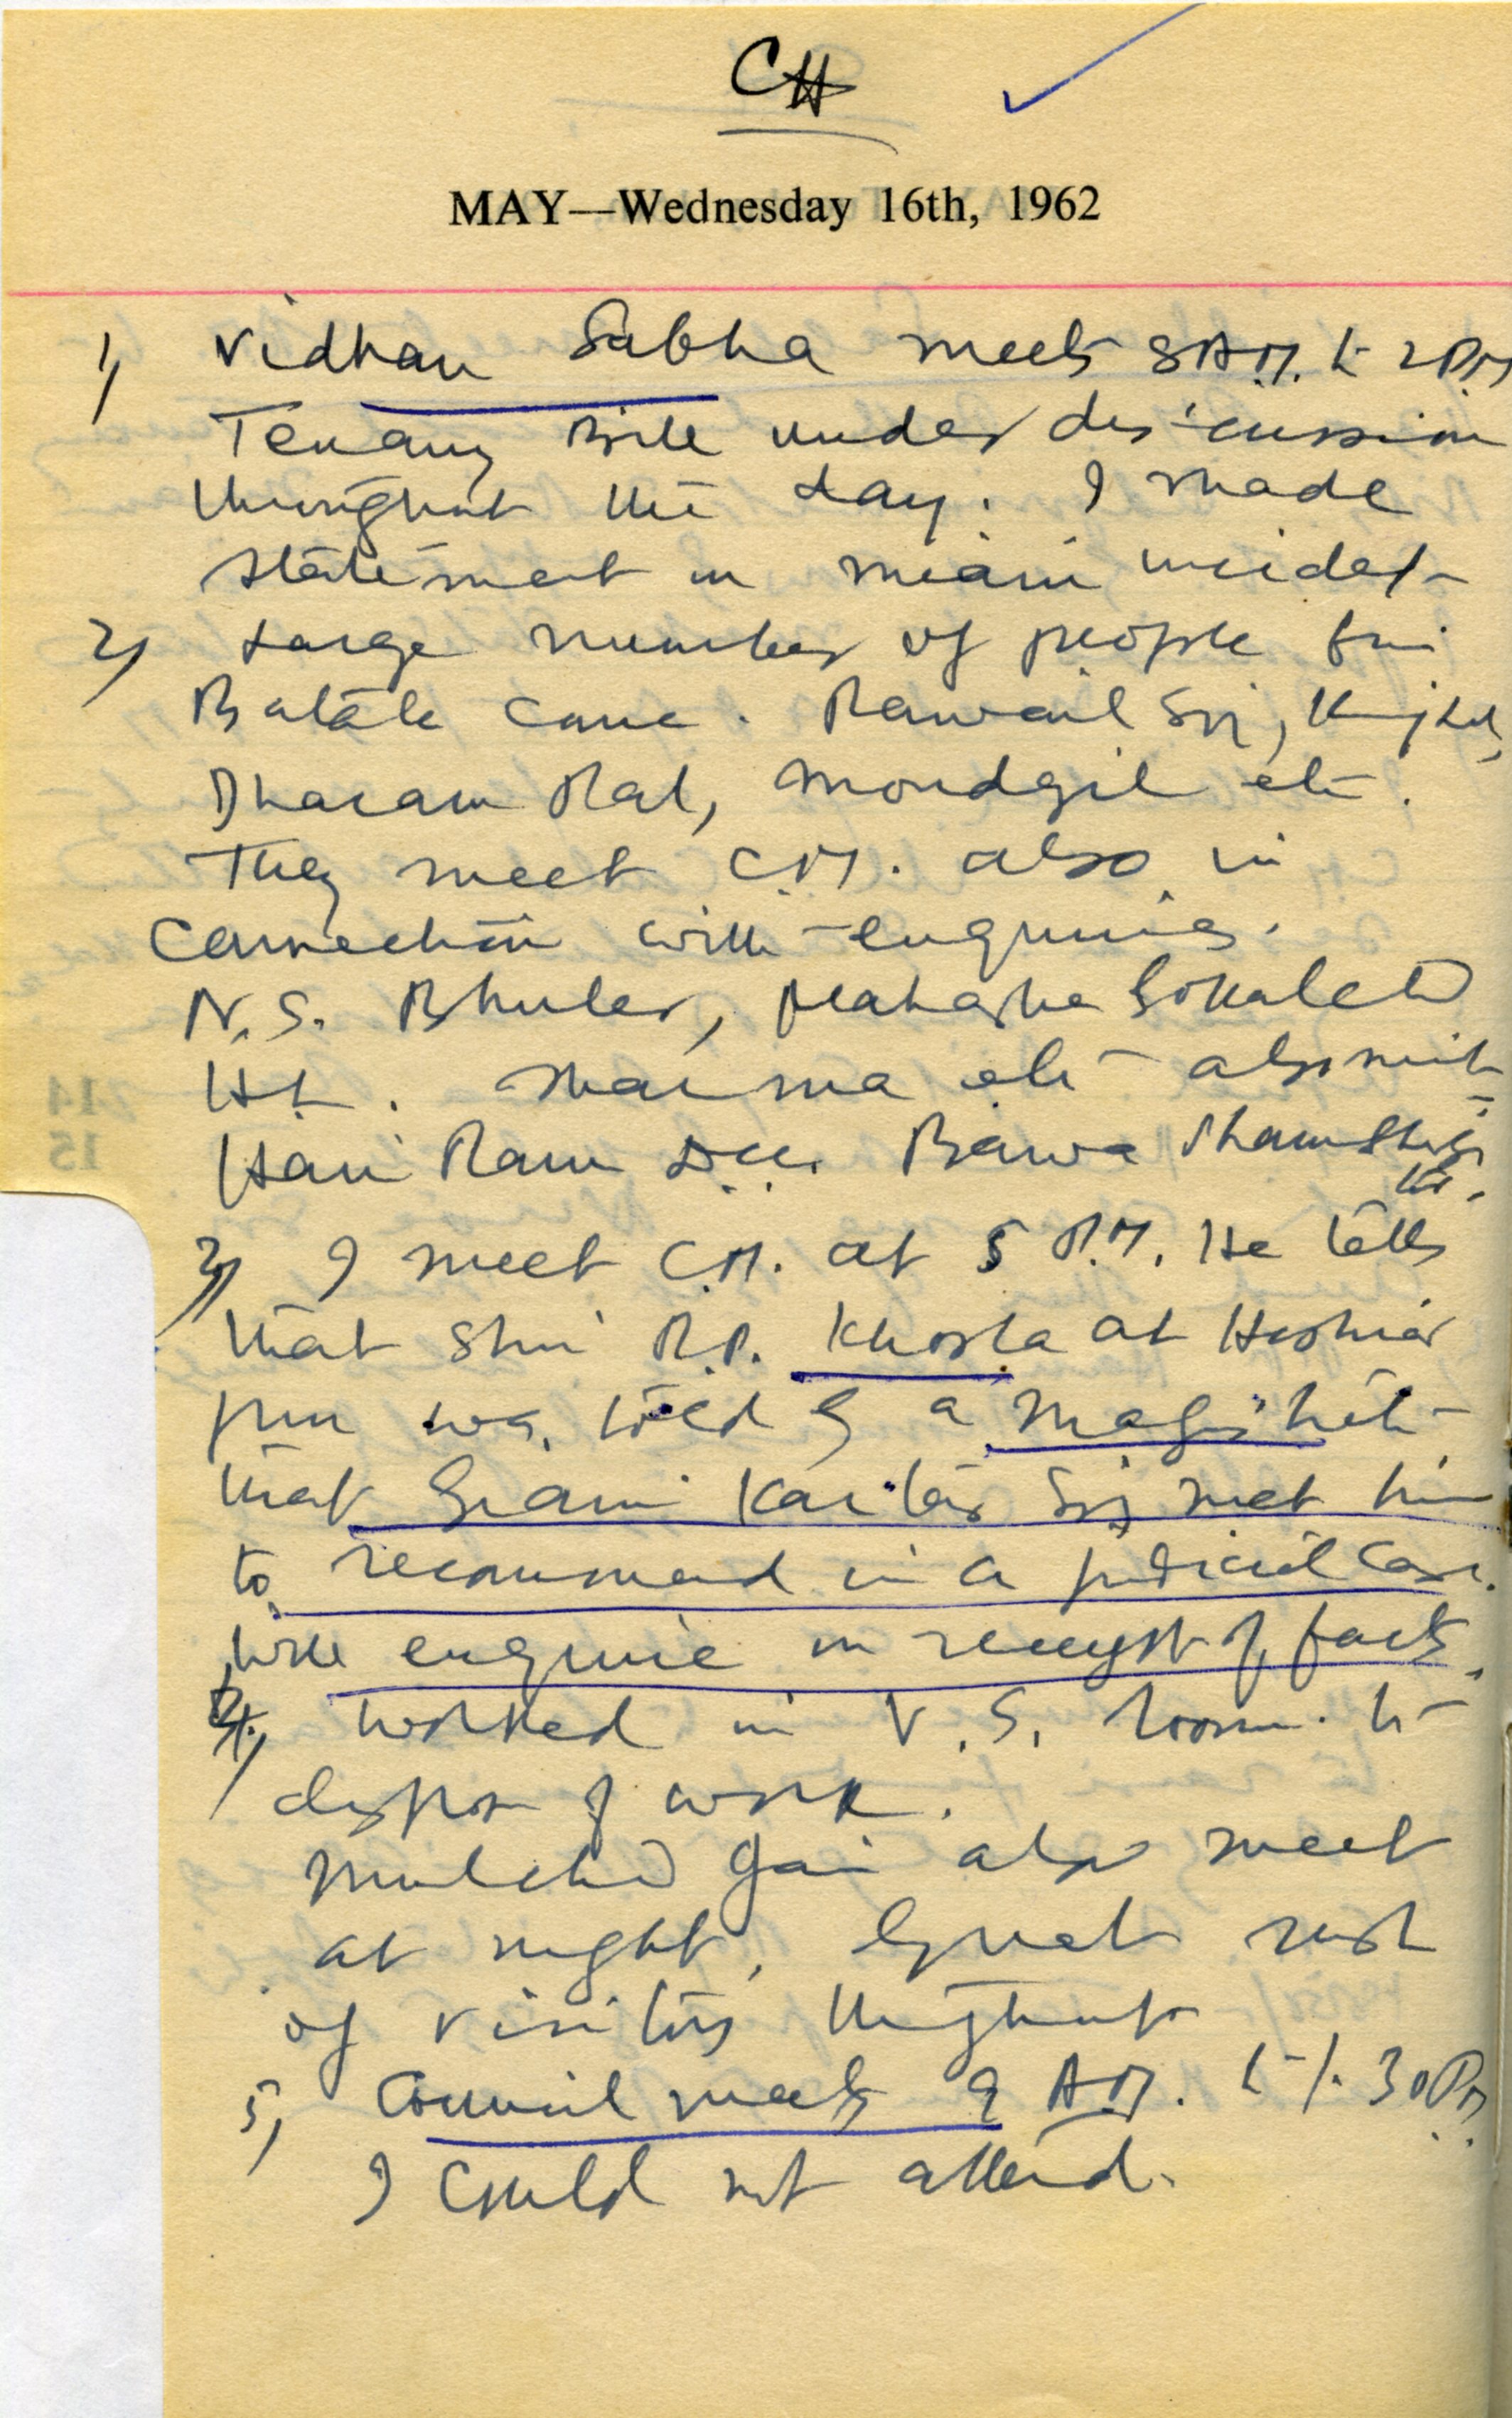 CH
MAY—Wednesday 16th, 1962
1) Vidhan Sabha meets 8 A.M. to 2 P.M.
Tenancy Bill under discussion
throughout the day. I made
statement on miani incident
2) Large number of people from
Batala came. Rawail Sg,
Dharam Pal, Mondgil etc.
They meet C.M. also in
connection with enquiries.
N.S. Bhuler, Mahashe Gokalchd
H.L. Sharma etc also meet
Hari Ram Bawa Sham
3) I meet C.M. at 5 P.M. He tells
that Shri R.P. Khosla at Hoshiar
pur was told by a magistrate
that Giani Kartar Sg met him
to recommend in a judicial case.
Will enquire on receipt of facts.
4) Worked in V.S. Room to
dispose of work.
Mulchd Jain also meet
at night. Great rush
of visitors throughout
5) Council meets 9 A.M. to 1.30 P.M.
I could not attend.